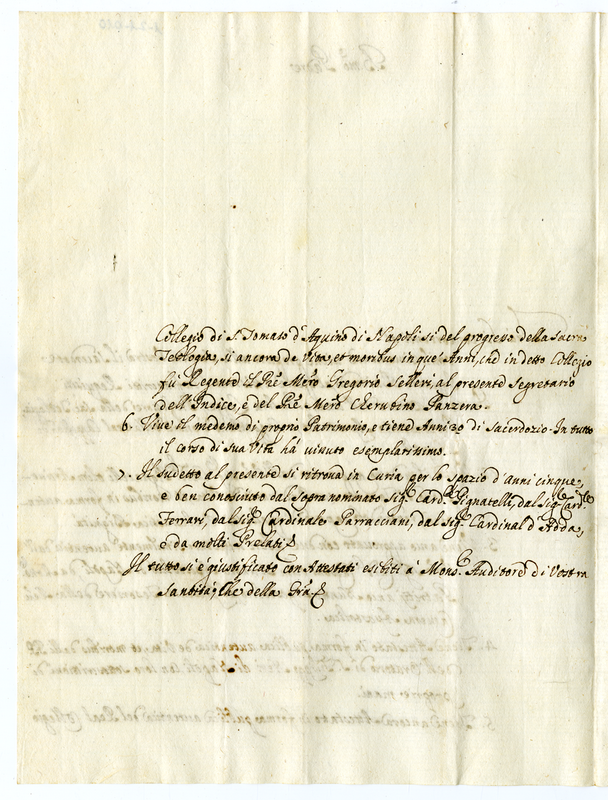 Collegio di S. Tomaso d'Aquino di Napoli si del progresso della Sacra
Teologia, si ancora de Vita, et moribus in que' Anni, che in detto Collegio
fù Regente il Pre. Mero. Gregorio Selleri, al presente Segretario
dell'Indice, e del Pre. Mero. Cherubino Panzera.
6. Vive il medemo di proprio Patrimonio, e tiene Anni 20 di Sacerdozio. In tutto
il corso di sua Vita há vivuto esemplarissimo.
7. Il sudetto al presente si ritrova in Curia per lo spazio d'anni cinque,
e ben conosciuto dal sopra nominato Sigr. Cardl. Pignatelli, dal Sigr. Cardl.
Ferrari, dal Sigr. Cardinale Parracciani, dal Sigr. Cardinal d'Adda,
e da molti Prelati
Il tutto si è giustificato con Attestati esibiti a' Monsr. Auditore di Vostra
Santità; Che della Gra.